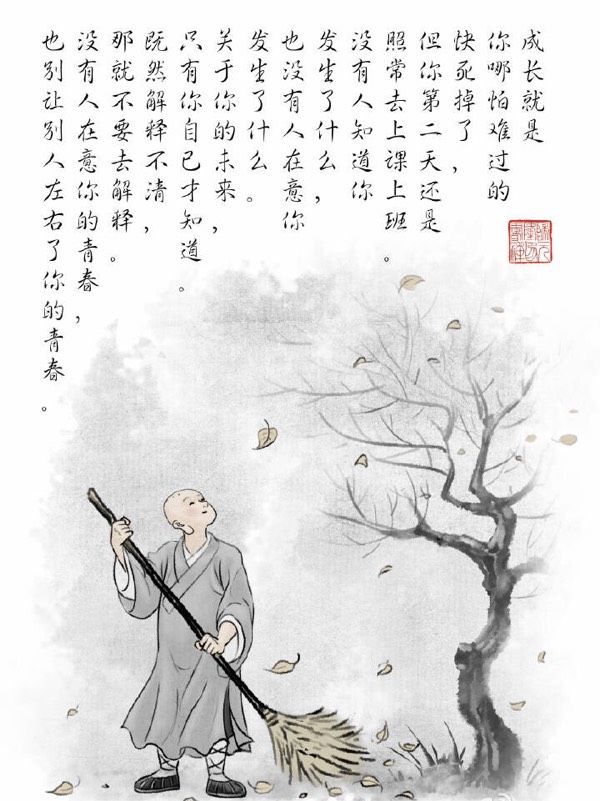 成长就是
你哪怕难过的
快死掉了，
但你第二天还是
照常去上课上班。
没有人知道你
发生了什么，
也没有人在意你
发生了什么。
关于你的未来，
只有你自己才知道。
既然解释不清，
那就不要去解释。
没有人在意你的青春，
也别让别人左右了你的青春。